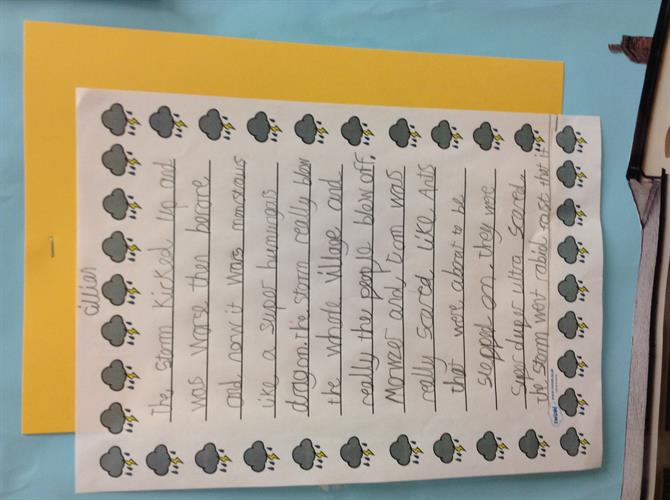 cillian
The storm kicked up and
was worse then berore
and now it was monstrous
like a super humungois
dragon. The storm really blew
the whole village and
really the people blew off.
Mowzer and Tom was
really scared like Ants
that were about to be
stepped on. they were
super duper ultra scared.
the storm went that it
twinkl